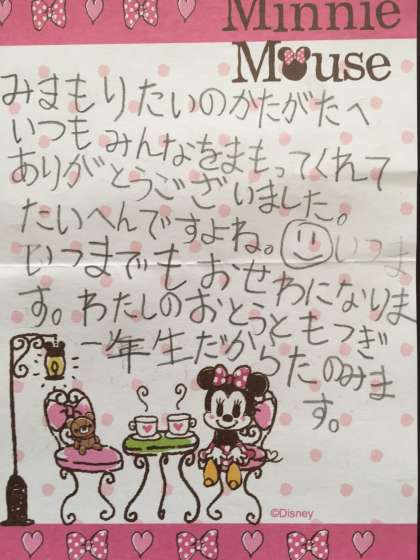 Minnie
Mouse
みまもりたいのかたがたへ
いつもみんなをまもってくれて
ありがとうございました。
たいへんですよね。いつま
いつまでもおせわになりま
す。わたしのおとうともつぎ
一年生だからたのみま
す。
©Disney